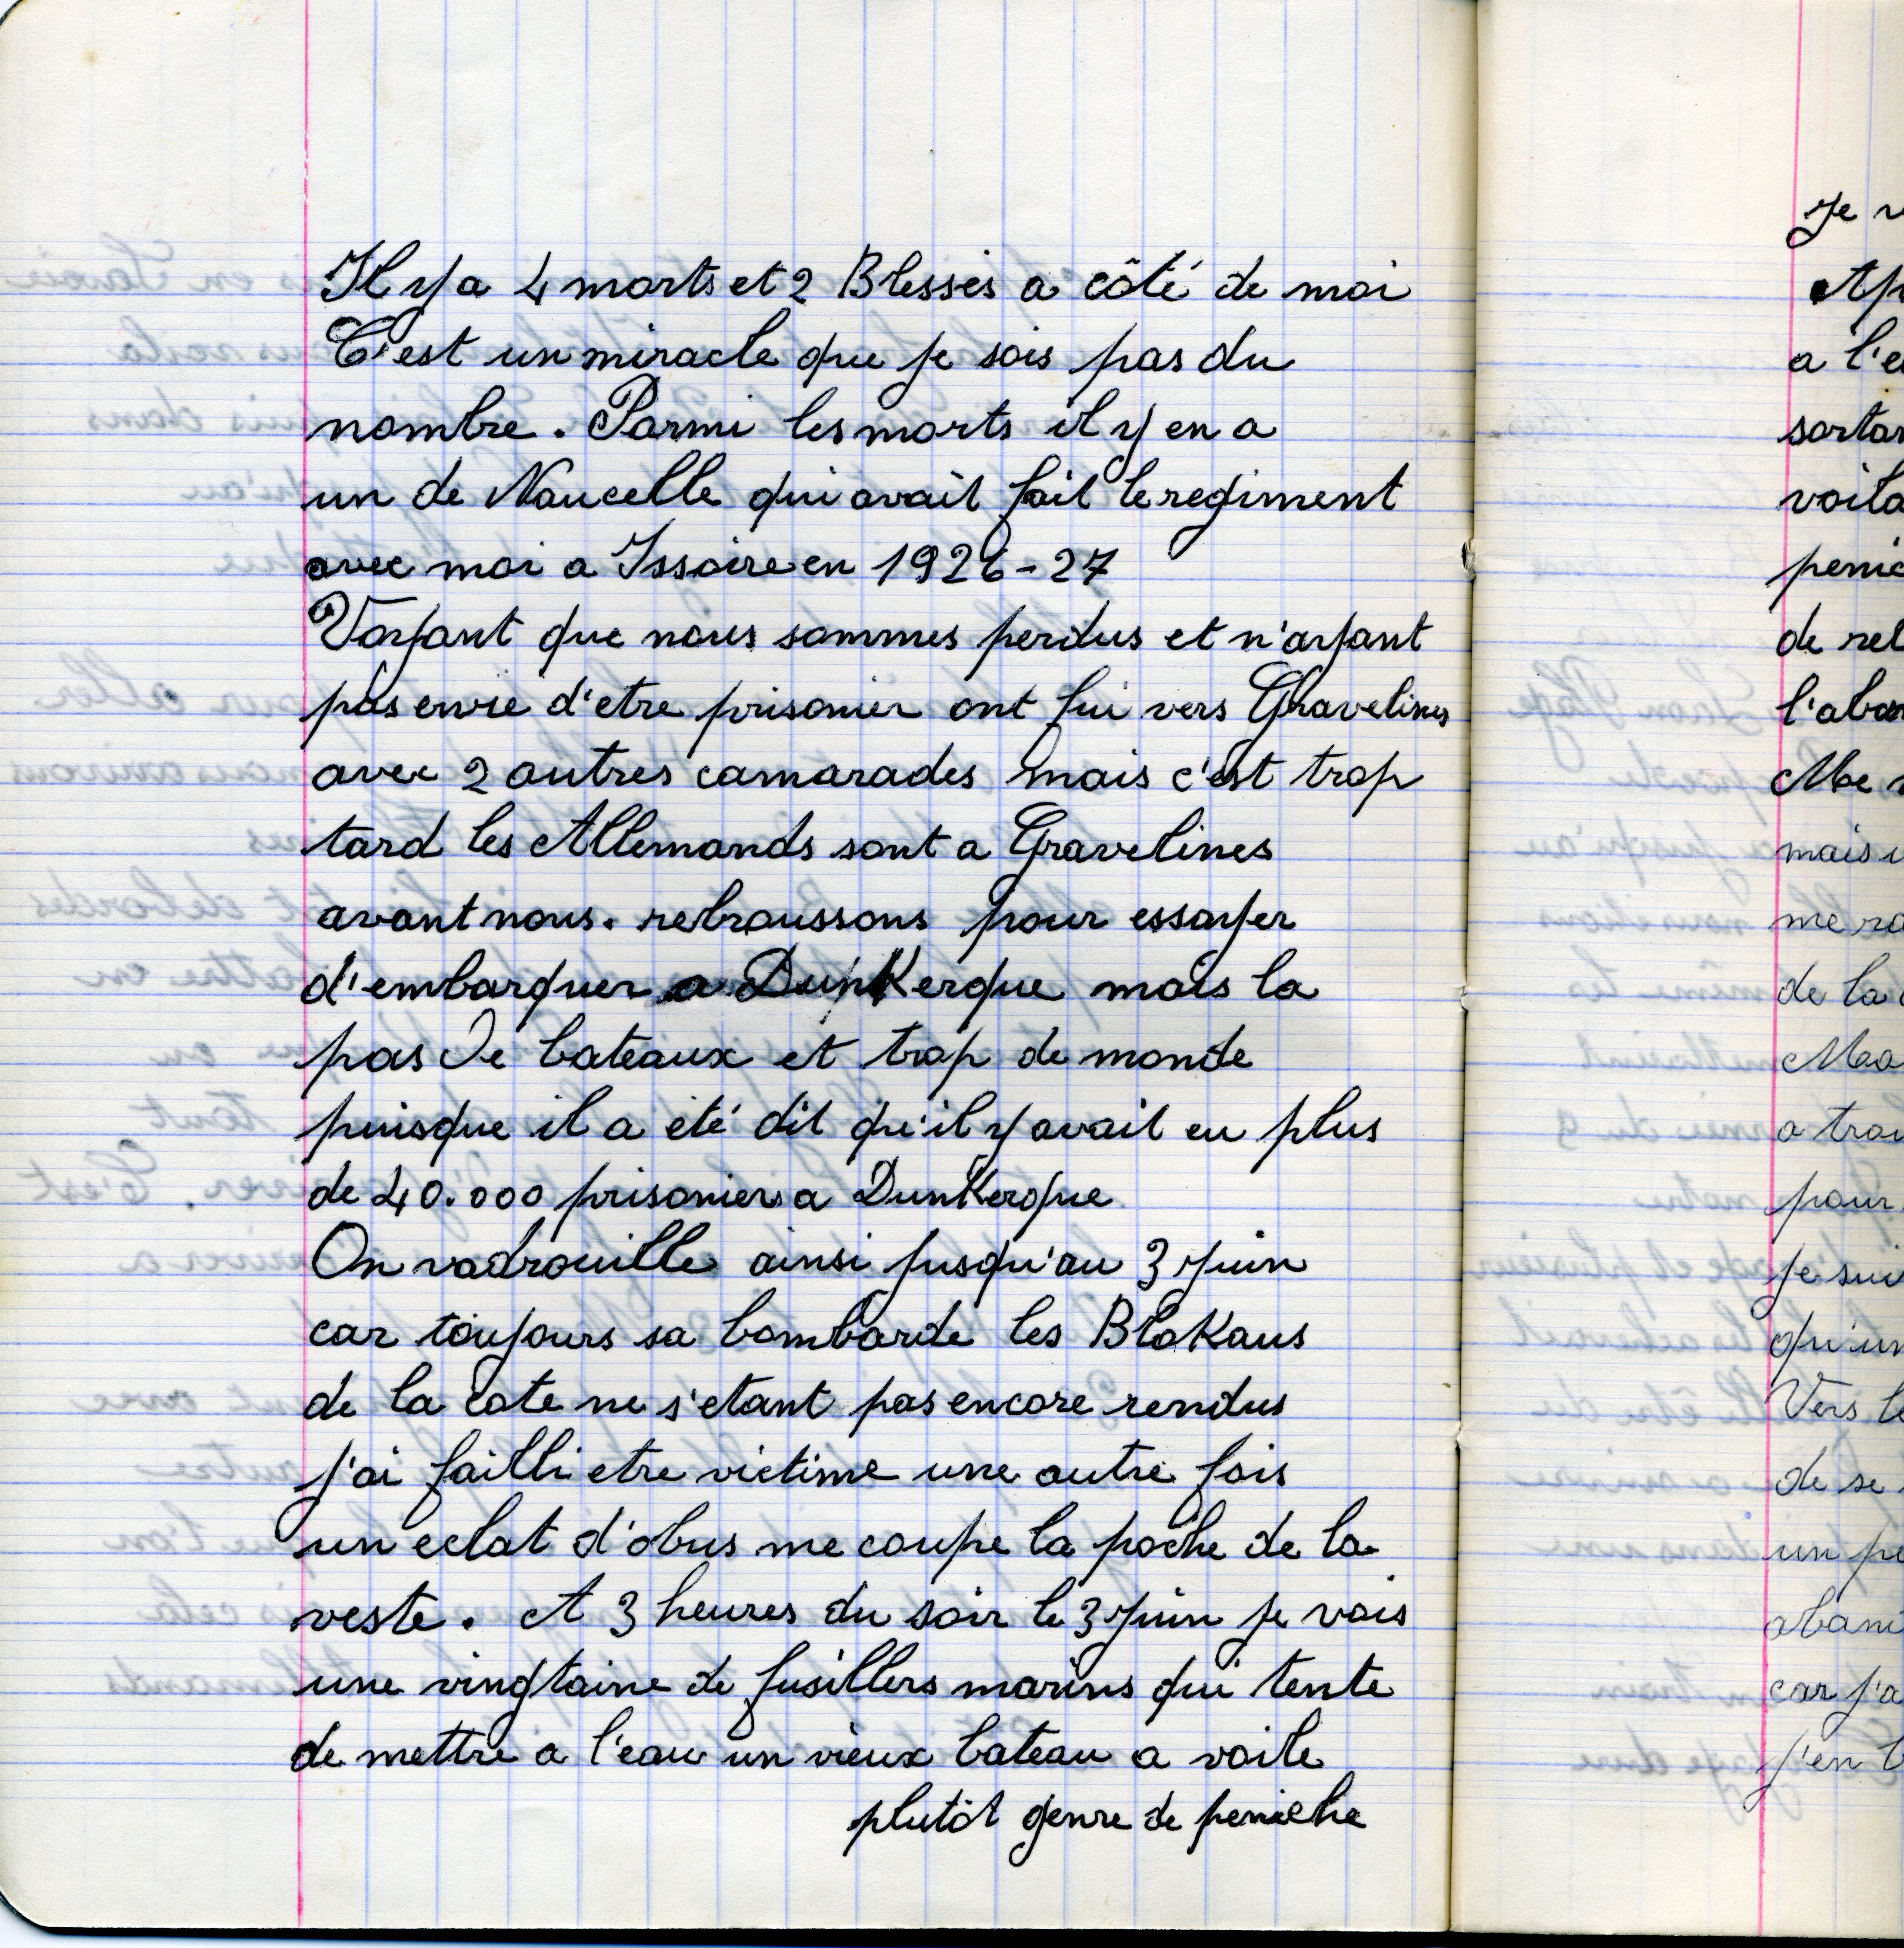 Il y a 4 morts et 2 Blessés a côté de moi
C'est un miracle que je sois pas du
nombre. Parmi les morts il y en a
un de Naucelle qui avait fait le regiment
avec moi a Issoire en 1926-27
Voyant que nous sommes perdus et n'ayant
pas envie d'etre prisonier ont fui vers Gravelines
avec 2 autres camarades mais c'est trop
tard les Allemands sont a Gravelines
avant nous. rebroussons pour essayer
d'embarquer a DunKerque mais la
pas de bateaux et trop de monde
puisque il a été dit qu'il y avait eu plus
de 40.000 prisoniers a DunKerque
On vadrouille ainsi jusqu'au 3 juin
car toujours sa bombarde les BloKaus
de la cote ne s'etant pas encore rendus
j'ai failli etre victime une autre fois
un eclat d'obus me coupe la poche de la
veste. A 3 heures du soir le 3 juin je vois
une vingtaine de fusillers marins qui tente
de mettre a l'eau un vieux bateau a voile
plutôt genre de peniche
Je
a l'e
voila
de
me
de la
pour
je sui
Vers le
de se
un
car j'a
j'en